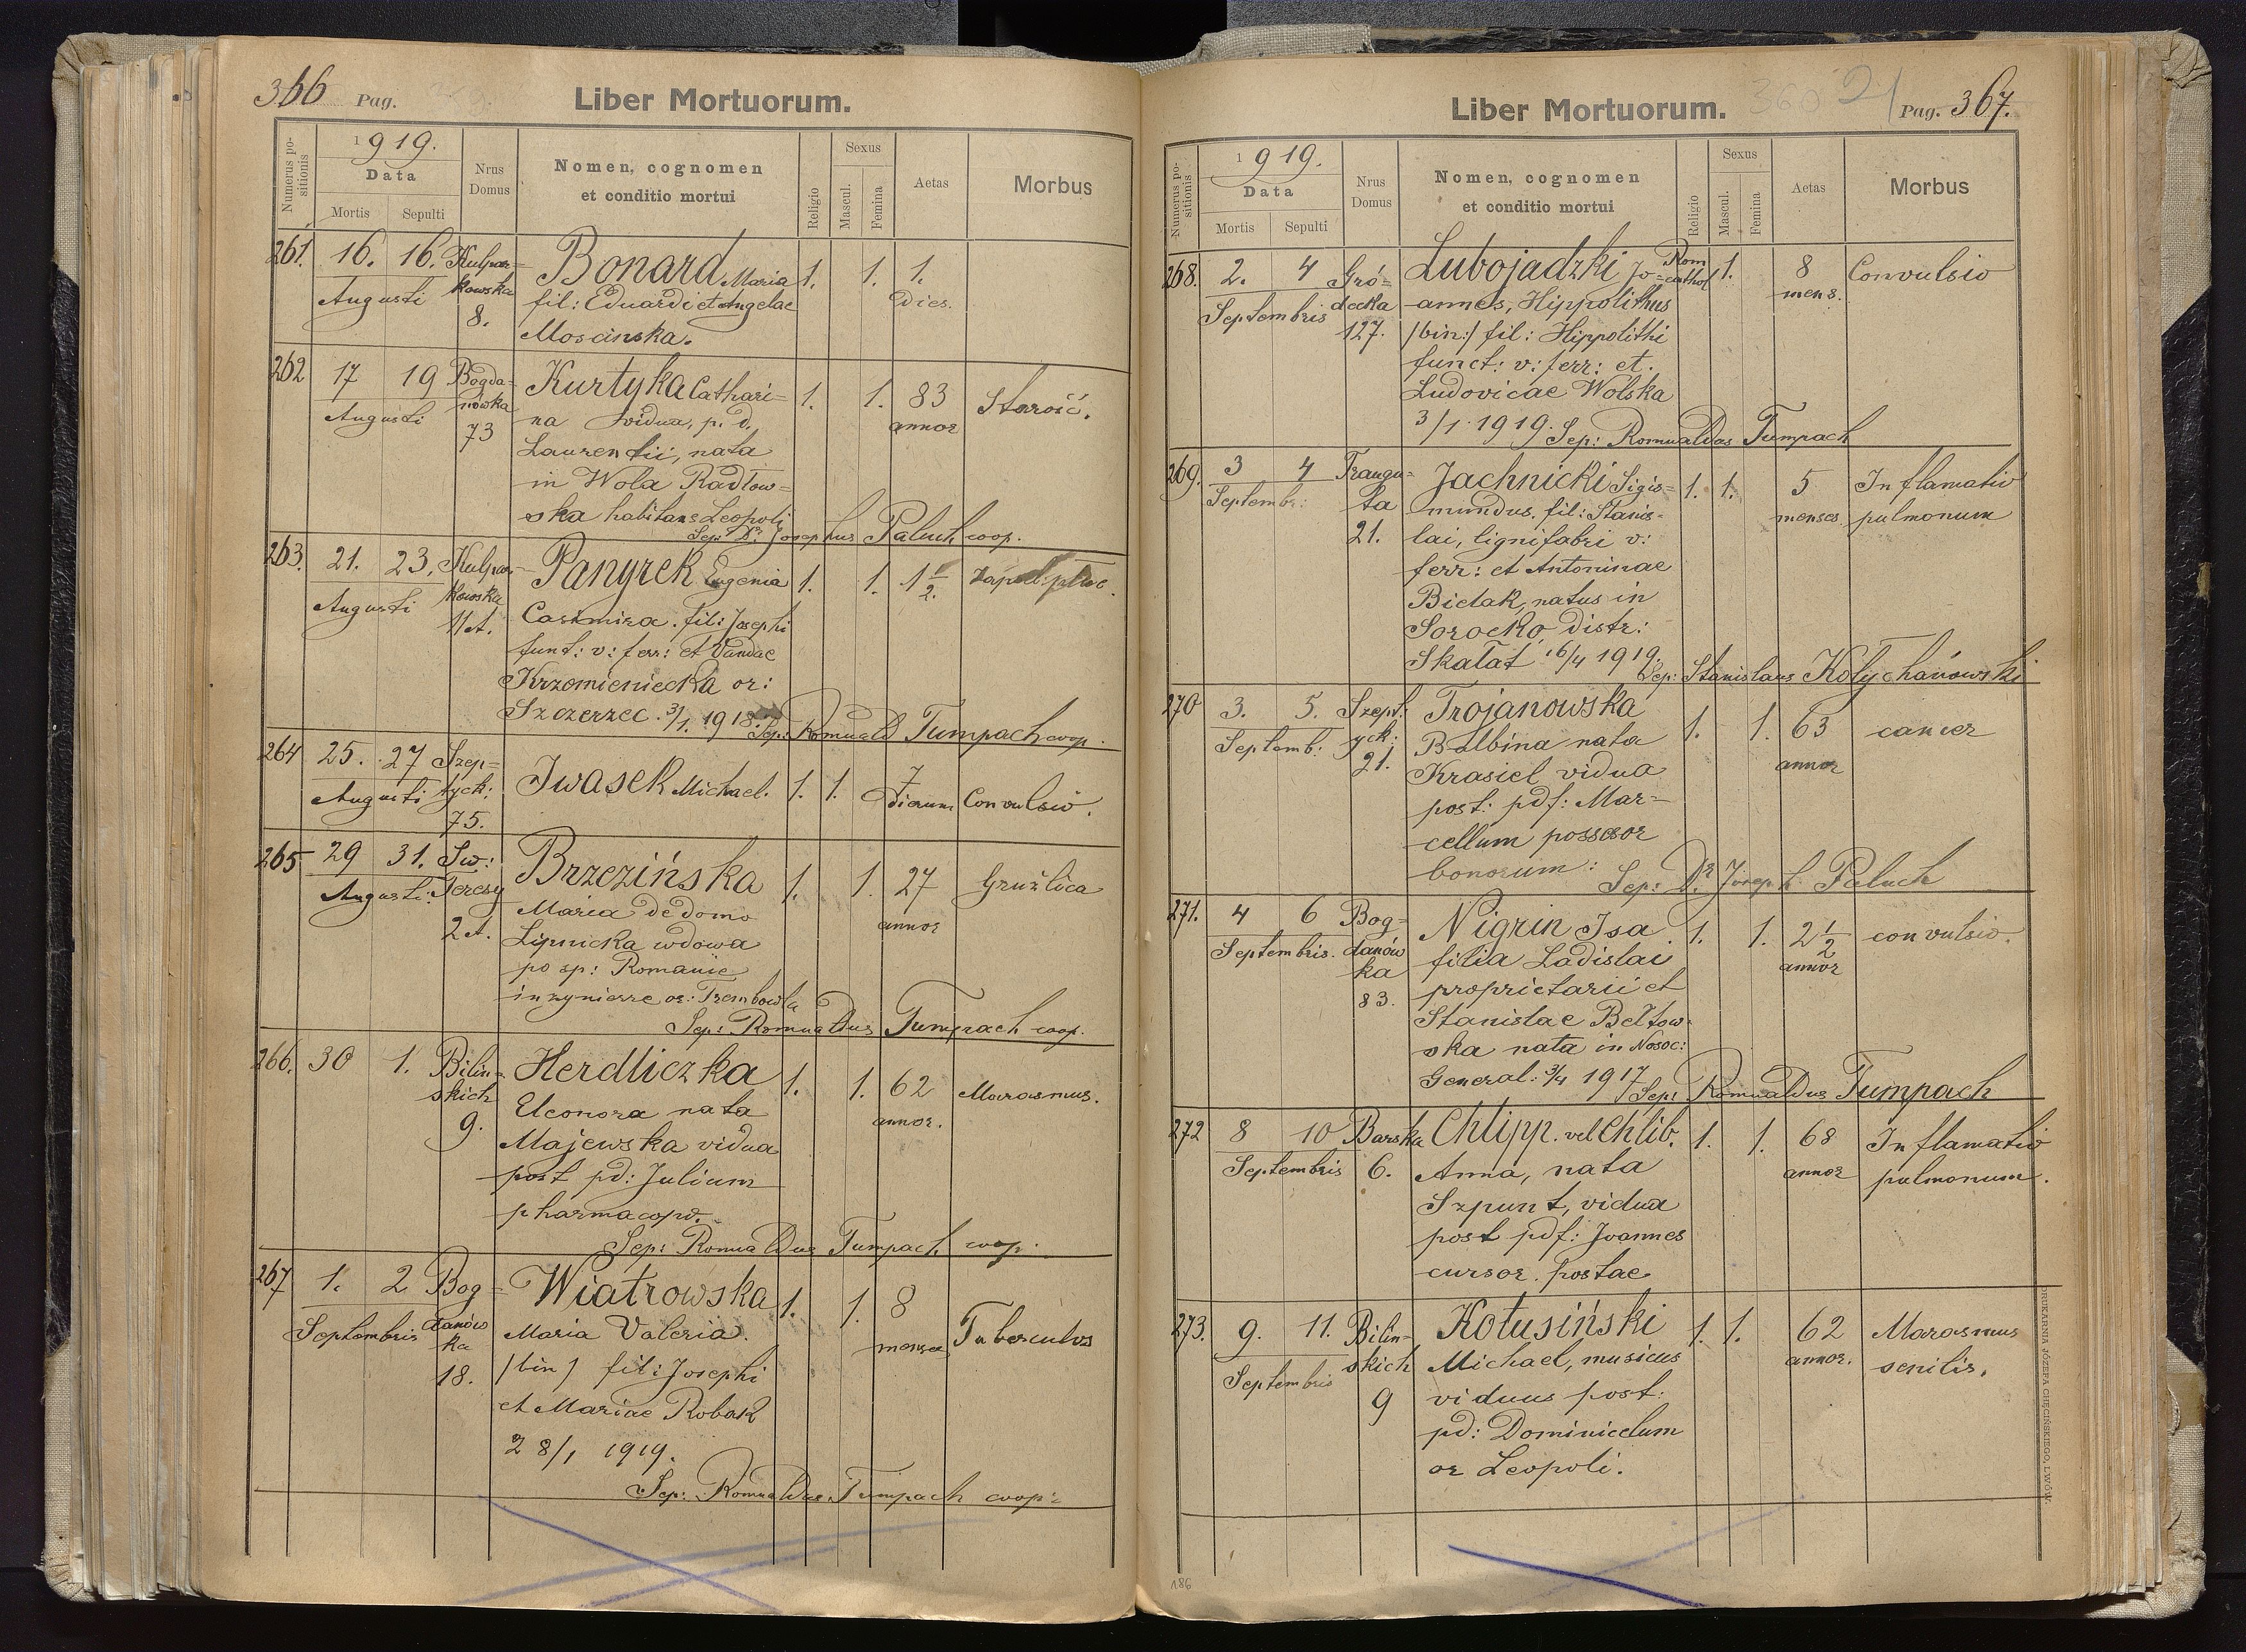 366 Pag.
Liber Mortuorum.
Numerus positionis
1919.
Data
Mortis Sepulti
Nrus Domus
Nomen, cognomen et conditio mortui
Religio
Sexus
Mascul.
Femina
Aetas
Morbus
261. 16. 16. Kulpar= Bonard Maria 1. 1. 1.
Augusti kowska fil: Eduardi et Angelae dies.
8. Moscinska.
262 17 19 Bogda= Kurtyka Cathari= 1. 1. 83 Starość.
Augusti nówka na vidua, p. d. annor
73 Laurentii, nata
in Wola Radłow=
ska habitans Leopoli
Sep: Dr. Josephus Paluch coop.
263. 21. 23. Kulpar= Panyrek Eugenia 1. 1. 1 1/2. Zapal: płuc.
Augusti kowska Casimira. fil: Josephi
11A. funt: v: ferr: et Vandae
Krzemieniecka or:
Szczerzec. 3/1. 1918.
Sep: Romuald Tumpach coop.
264 25. 27 Szep= Iwasek Michael. 1. 1. 7 Convulsio.
Augusti tyck: dierum
75.
265 29 31. Sw: Brzezińska 1. 1. 27 Gruźlica
Augusti: Teresy Maria de domo annor
2A. Lipnicka wdowa
po sp: Romanie
inzynierze or: Trembowla
Sep: Romualdus Tumpach coop.
266. 30 1. Bilin= Herdliczka 1. 1. 62 Marasmus.
skich Eleonora nata annor.
9. Majewska vidua
post pd: Julium
pharmacopo.
Sep: Romualdus Tumpach coop.
267 1. 2 Bog= Wiatrowska 1. 1. 8 Tuberculos
Septembris danów Maria Valeria. menses
ka /bin/ fil: Josephi
18. et Mariae Robak
28/1 1919.
Sep: Romualdus Tumpach coop:
360 21
Pag. 367.
Liber Mortuorum.
Numerus positionis
1919.
Data
Mortis Sepulti
Nrus Domus
Nomen, cognomen et conditio mortui
Religio
Sexus
Mascul.
Femina
Aetas
Morbus
268. 2. 4 Gró= Lubojadzki Jo= Rom cathol 1. 8 Convulsio
Septembris decka annes, Hippolithus mens.
127. /bin:/ fil: Hippolithi
funct: v: ferr: et.
Ludovicae Wolska
3/1 1919. Sep: Romualdus Tumpach
269. 3 4 Traugu= Jachnicki Sigis= 1. 1. 5 Inflamatio
Septembr: ta mundus. fil: Stanis= menses pulmonum
21. lai, lignifabri v:
ferr: et Antoninae
Bielak, natus in
Sorocko, distr:
Skałat 16/4 1919.
Sep: Stanislaus Kolychanowski
270 3. 5. Szept: Trojanowska 1. 1. 63 cancer
Septemb: yck: Balbina nata annor
21. Krasicl vidua
post: pdf: Mar=
cellum possesor
bonorum: Sep: Dr. Joseph Paluch
271. 4 6 Bog= Nigrin Isa 1. 1. 2 1/2 convulsio.
Septembris. danów filia Ladislai annor
ka proprietarii et
83. Stanislae Bełtow=
ska nata in Nosoc:
General: 3/4 1917
Sep: Romualdus Tumpach
272 8 10 Barska Chlipp. vel Chlib. 1. 1. 68 Inflamatio
Septembris 6. Anna, nata annor pulmonum.
Szpunt, vidua
post pdf: Joannes
cursor. postae
273. 9. 11. Bilin= Kotusiński 1. 1. 62 Marasmus
Septembris skich Michael, musicus annor. senilis.
9 viduus post:
pd: Dominicelum
or Leopoli.
186
DRUKARNIA JÓZEFA CHĘCIŃSKIEGO, LWÓW.